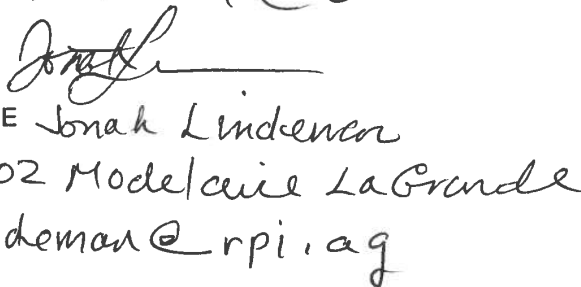 E Jonah Lindeman
02 Modelaire LaGrande
deman@rpi.ag